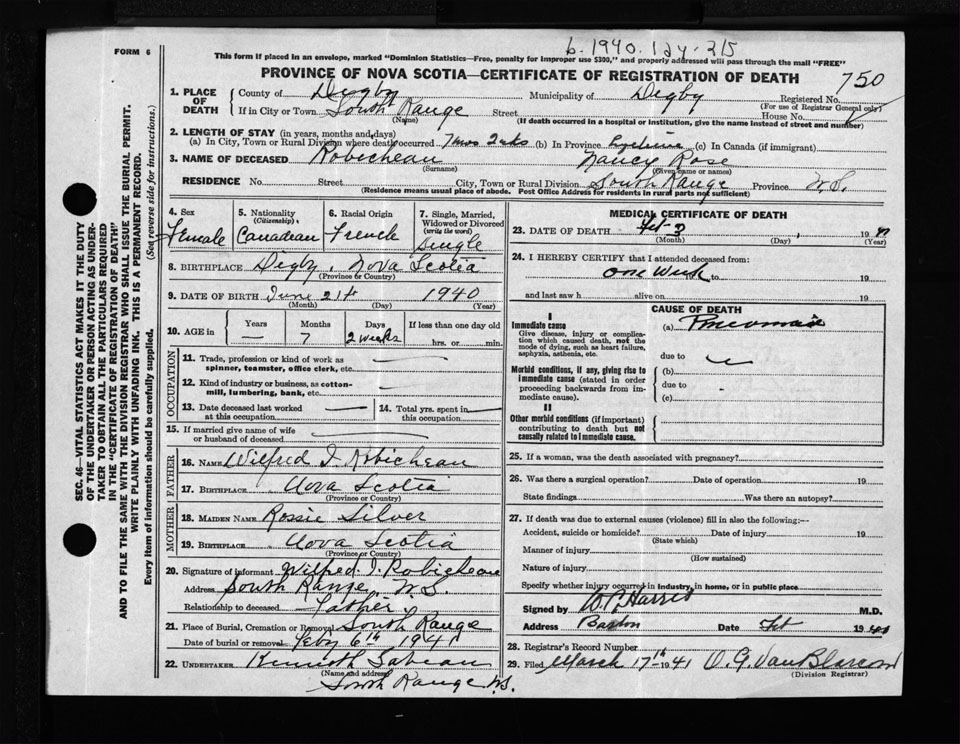 b. 1940. 124. 215
FORM 6
This form if placed in an envelope, marked "Dominion Statistics—Free, penalty for improper use $300," and properly addressed will pass through the mail "FREE"
PROVINCE OF NOVA SCOTIA—CERTIFICATE OF REGISTRATION OF DEATH
750
1. PLACE OF DEATH
County of Digby Municipality of Digby Registered No.
(For use of Registrar General only)
If in City or Town South Range Street House No.
(Name) (If death occurred in a hospital or institution, give the name instead of street and number)
2. LENGTH OF STAY (in years, months and days)
(a) In City, Town or Rural Division where death occurred 7 mos 2 wks (b) In Province Lifetime (c) In Canada (if immigrant)
3. NAME OF DECEASED Robicheau Nancy Rose
(Surname) (Given name or names)
RESIDENCE No. Street City, Town or Rural Division South Range Province N.S.
(Residence means usual place of abode. Post Office Address for residents in rural parts not sufficient)
4. Sex Female
5. Nationality (Citizenship) Canadian
6. Racial Origin French
7. Single, Married, Widowed or Divorced (write the word) Single
8. BIRTHPLACE Digby, Nova Scotia
(Province or Country)
9. DATE OF BIRTH June 21st 1940
(Month) (Day) (Year)
10. AGE in Years — Months 7 Days 2 weeks If less than one day old hrs. or min.
OCCUPATION
11. Trade, profession or kind of work as spinner, teamster, office clerk, etc. —
12. Kind of industry or business, as cotton-mill, lumbering, bank, etc. —
13. Date deceased last worked at this occupation —
14. Total yrs. spent in this occupation —
15. If married give name of wife or husband of deceased —
FATHER
16. NAME Wilfred J. Robicheau
17. BIRTHPLACE Nova Scotia
(Province or Country)
MOTHER
18. MAIDEN NAME Rossie Silver
19. BIRTHPLACE Nova Scotia
(Province or Country)
20. Signature of informant Wilfred J. Robicheau
Address South Range, N.S.
Relationship to deceased Father
21. Place of Burial, Cremation or Removal South Range
Date of burial or removal Feby 6th 1941
22. UNDERTAKER Kenneth Sabean
(Name and address)
South Range N.S.
MEDICAL CERTIFICATE OF DEATH
23. DATE OF DEATH Feb 3, 19
(Month) (Day) (Year)
24. I HEREBY CERTIFY that I attended deceased from:
one week to 19
and last saw h alive on 19
CAUSE OF DEATH
I
Immediate cause
Give disease, injury or complication which caused death, not the mode of dying, such as heart failure, asphyxia, asthenia, etc.
(a) Pneumonia
due to
Morbid conditions, if any, giving rise to immediate cause (stated in order proceeding backwards from immediate cause)
(b)
due to
(c)
II
Other morbid conditions (if important) contributing to death but not causally related to immediate cause.
25. If a woman, was the death associated with pregnancy?
26. Was there a surgical operation? Date of operation 19
State findings Was there an autopsy?
27. If death was due to external causes (violence) fill in also the following:—
Accident, suicide or homicide? Date of injury 19
(State which)
Manner of injury
(How sustained)
Nature of injury
Specify whether injury occurred in industry, in home, or in public place
Signed by W. P. Harris M.D.
Address Barton Date Feb 19
28. Registrar's Record Number
29. Filed March 17th 1941 O. G. VanBlarcom
(Division Registrar)
SEC. 46—VITAL STATISTICS ACT MAKES IT THE DUTY
OF THE UNDERTAKER OR PERSON ACTING AS UNDER-
TAKER TO OBTAIN ALL THE PARTICULARS REQUIRED
IN THE "CERTIFICATE OF REGISTRATION OF DEATH"
AND TO FILE THE SAME WITH THE DIVISION REGISTRAR WHO SHALL ISSUE THE BURIAL PERMIT.
WRITE PLAINLY WITH UNFADING INK. THIS IS A PERMANENT RECORD.
Every item of information should be carefully supplied. (See reverse side for instructions.)